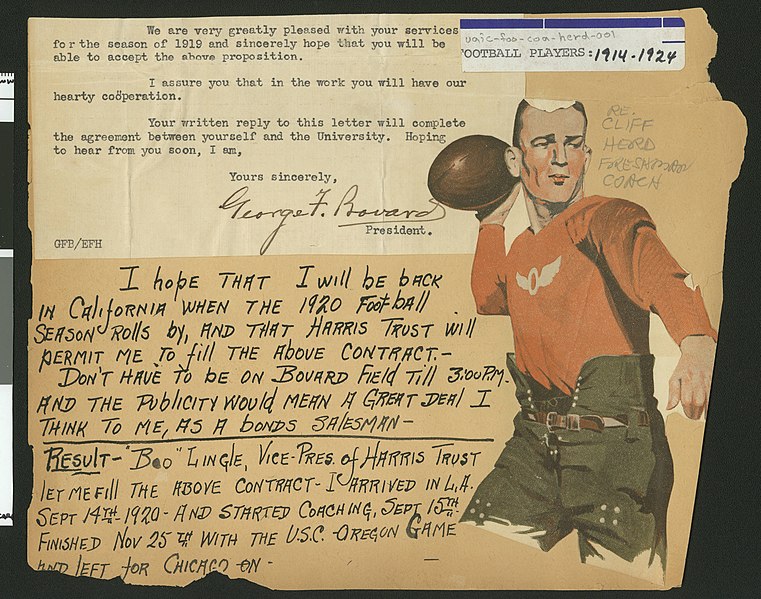 We are very greatly pleased with your services
for the season of 1919 and sincerely hope that you will be
able to accept the above proposition.
I assure you that in the work you will have our
hearty coöperation.
Your written reply to this letter will complete
the agreement between yourself and the University. Hoping
to hear from you soon, I am,
Yours sincerely,
George F. Bovard
President.
GFB/EFH
uaic-foo-coa-herd-001
FOOTBALL PLAYERS: 1914-1924
RE:
CLIFF
HERD
FORESHMAN
COACH
I hope THAT I will be back
IN CALIFORNIA WHEN THE 1920 FootBall
SEASON ROLLS by, AND THAT HARRIS TRUST will
PERMIT ME TO fill THE ABOVE CONTRACT.-
DON'T HAVE TO BE ON BOVARD FIELD TILL 3:00 P.M.
AND THE PUBLICITY WOULD MEAN A GREAT DEAL I
THINK TO ME, AS A BONDS SALESMAN-
RESULT- "BOO" LINGLE, VICE-PRES. of HARRIS TRUST
LET ME FILL THE ABOVE CONTRACT- I ARRIVED IN L.A.
SEPT 14TH 1920- AND STARTED COACHING, SEPT 15TH
FINISHED NOV 25TH WITH THE U.S.C. OREGON GAME
AND LEFT for CHICAGO ON-